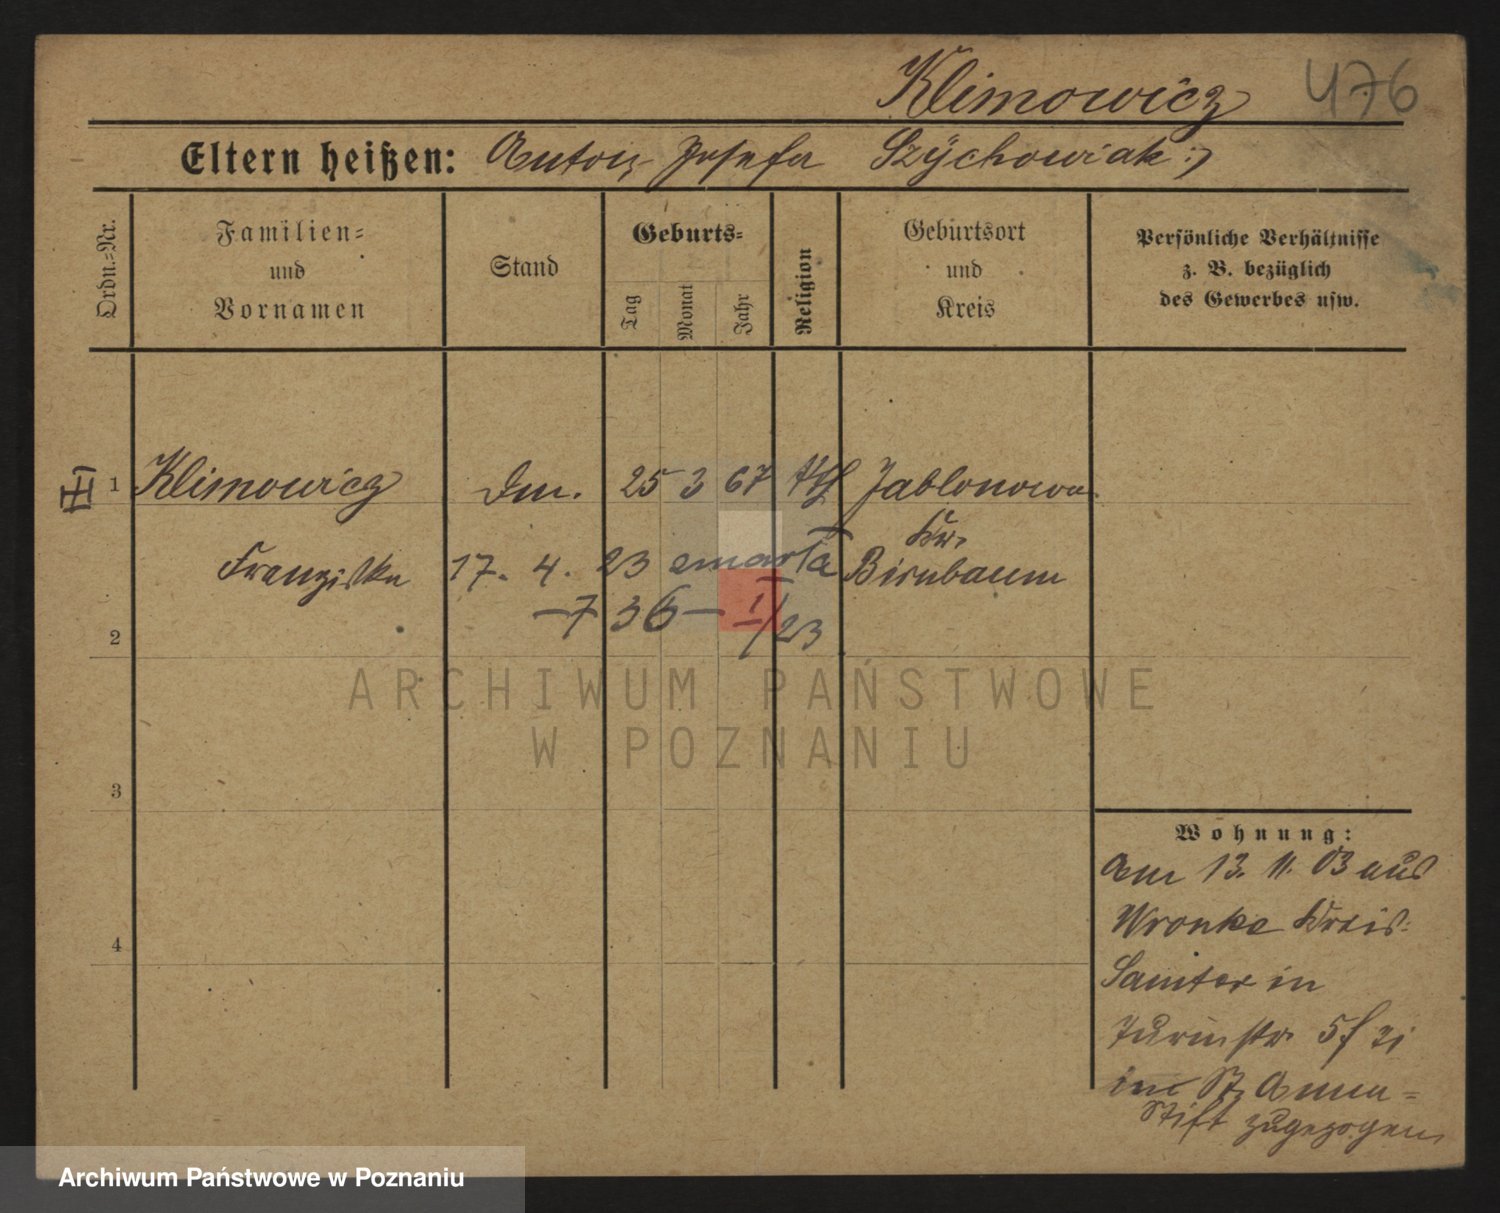 Klimowicz 476
Eltern heißen: Anton Josefa Szÿchowiak :)
Ordn.=Nr.
Familien=
und
Vornamen
Stand
Geburts=
Tag
Monat
Jahr
Religion
Geburtsort
und
Kreis
Persönliche Verhältnisse
z. B. bezüglich
des Gewerbes usw.
1 Klimowicz 25 3 67 kth Jablonowo
Kr.
Franziska 17. 4. 23 zmarła Birnbaum
736 — I/23
2
ARCHIWUM PAŃSTWOWE
W POZNANIU
3
4
Wohnung:
Am 13. 11. 03 aus
Wronke Kreis
Samter in
5
im St. Annen=
Stift zugezogen
Archiwum Państwowe w Poznaniu